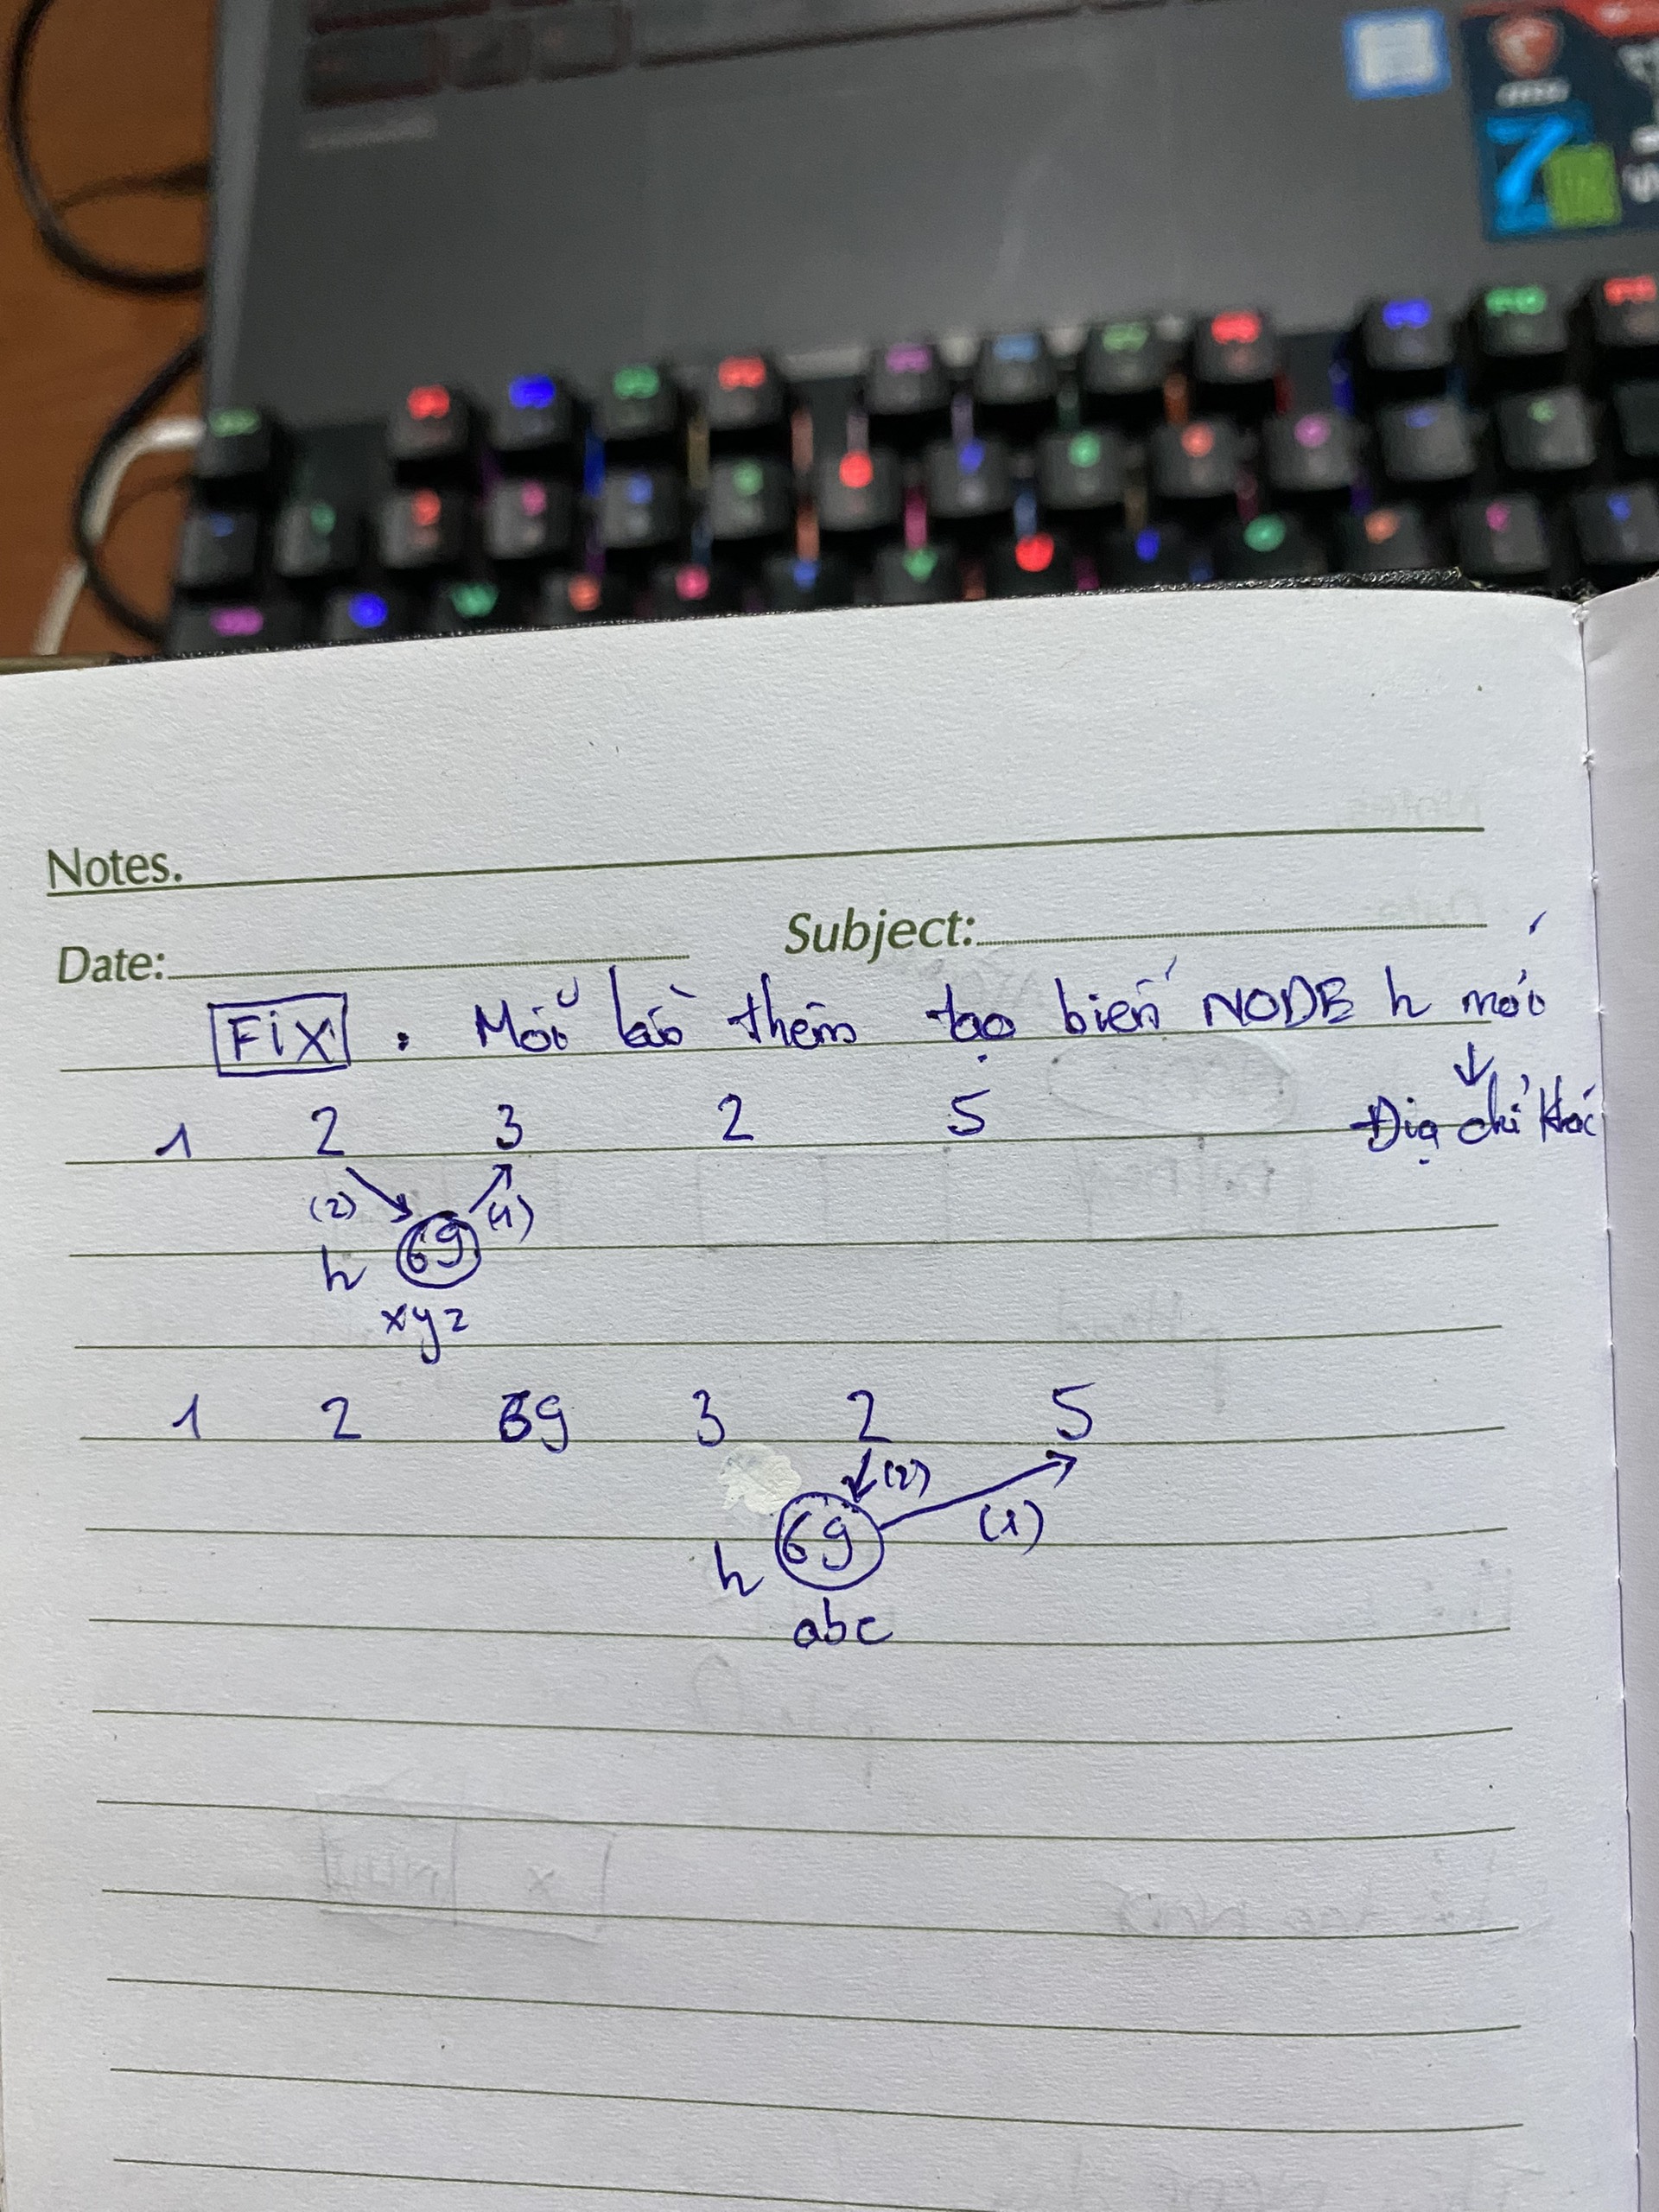 Notes.
Date: Subject:
FiX : Mỗi lần thêm tạo biến NODE h mới
↓
Địa chỉ khác
1 2 3 2 5
(2) (1)
h 69
xyz
1 2 69 3 2 5
(2)
(1)
h 69
abc